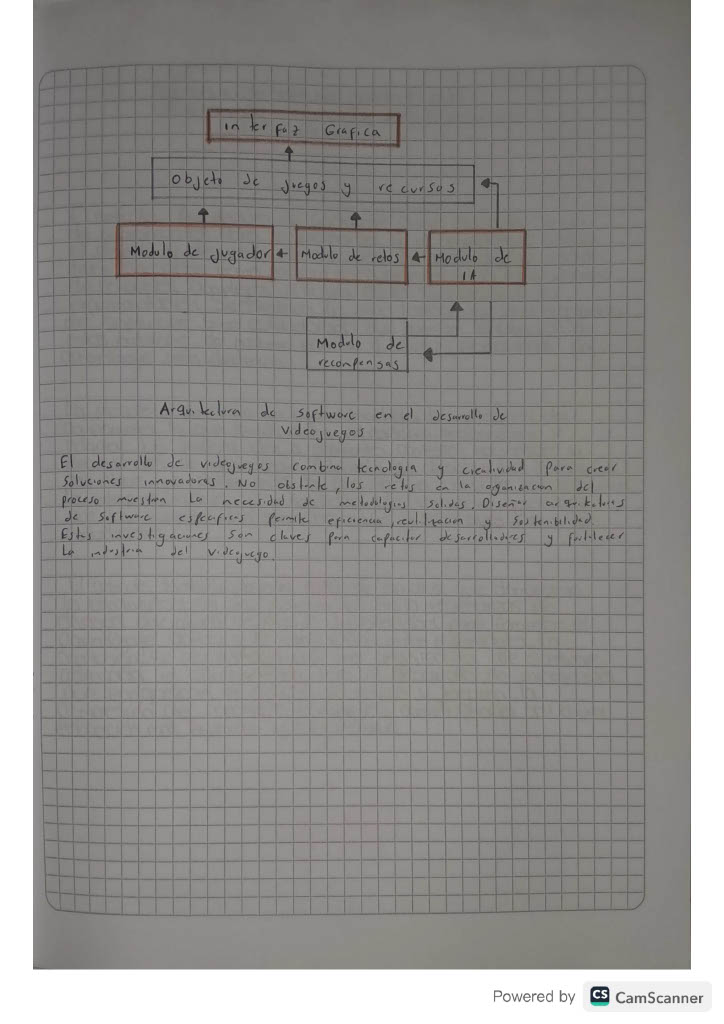 interfaz Grafica
Objeto de juegos y recursos
Modulo de jugador
Modulo de retos
Modulo de
IA
Modulo de
recompensas
Arquitectura de software en el desarrollo de
videojuegos
El desarrollo de videojuegos combina tecnologia y creatividad para crear
soluciones innovadoras. No obstante, los retos en la organizacion del
proceso muestran la necesidad de metodologias solidas. Diseñar arquitecturas
de software especificas permite eficiencia, reutilizacion y sostenibilidad.
Estas investigaciones son claves para capacitar desarrolladores y fortalecer
la industria del videojuego.
Powered by CS CamScanner